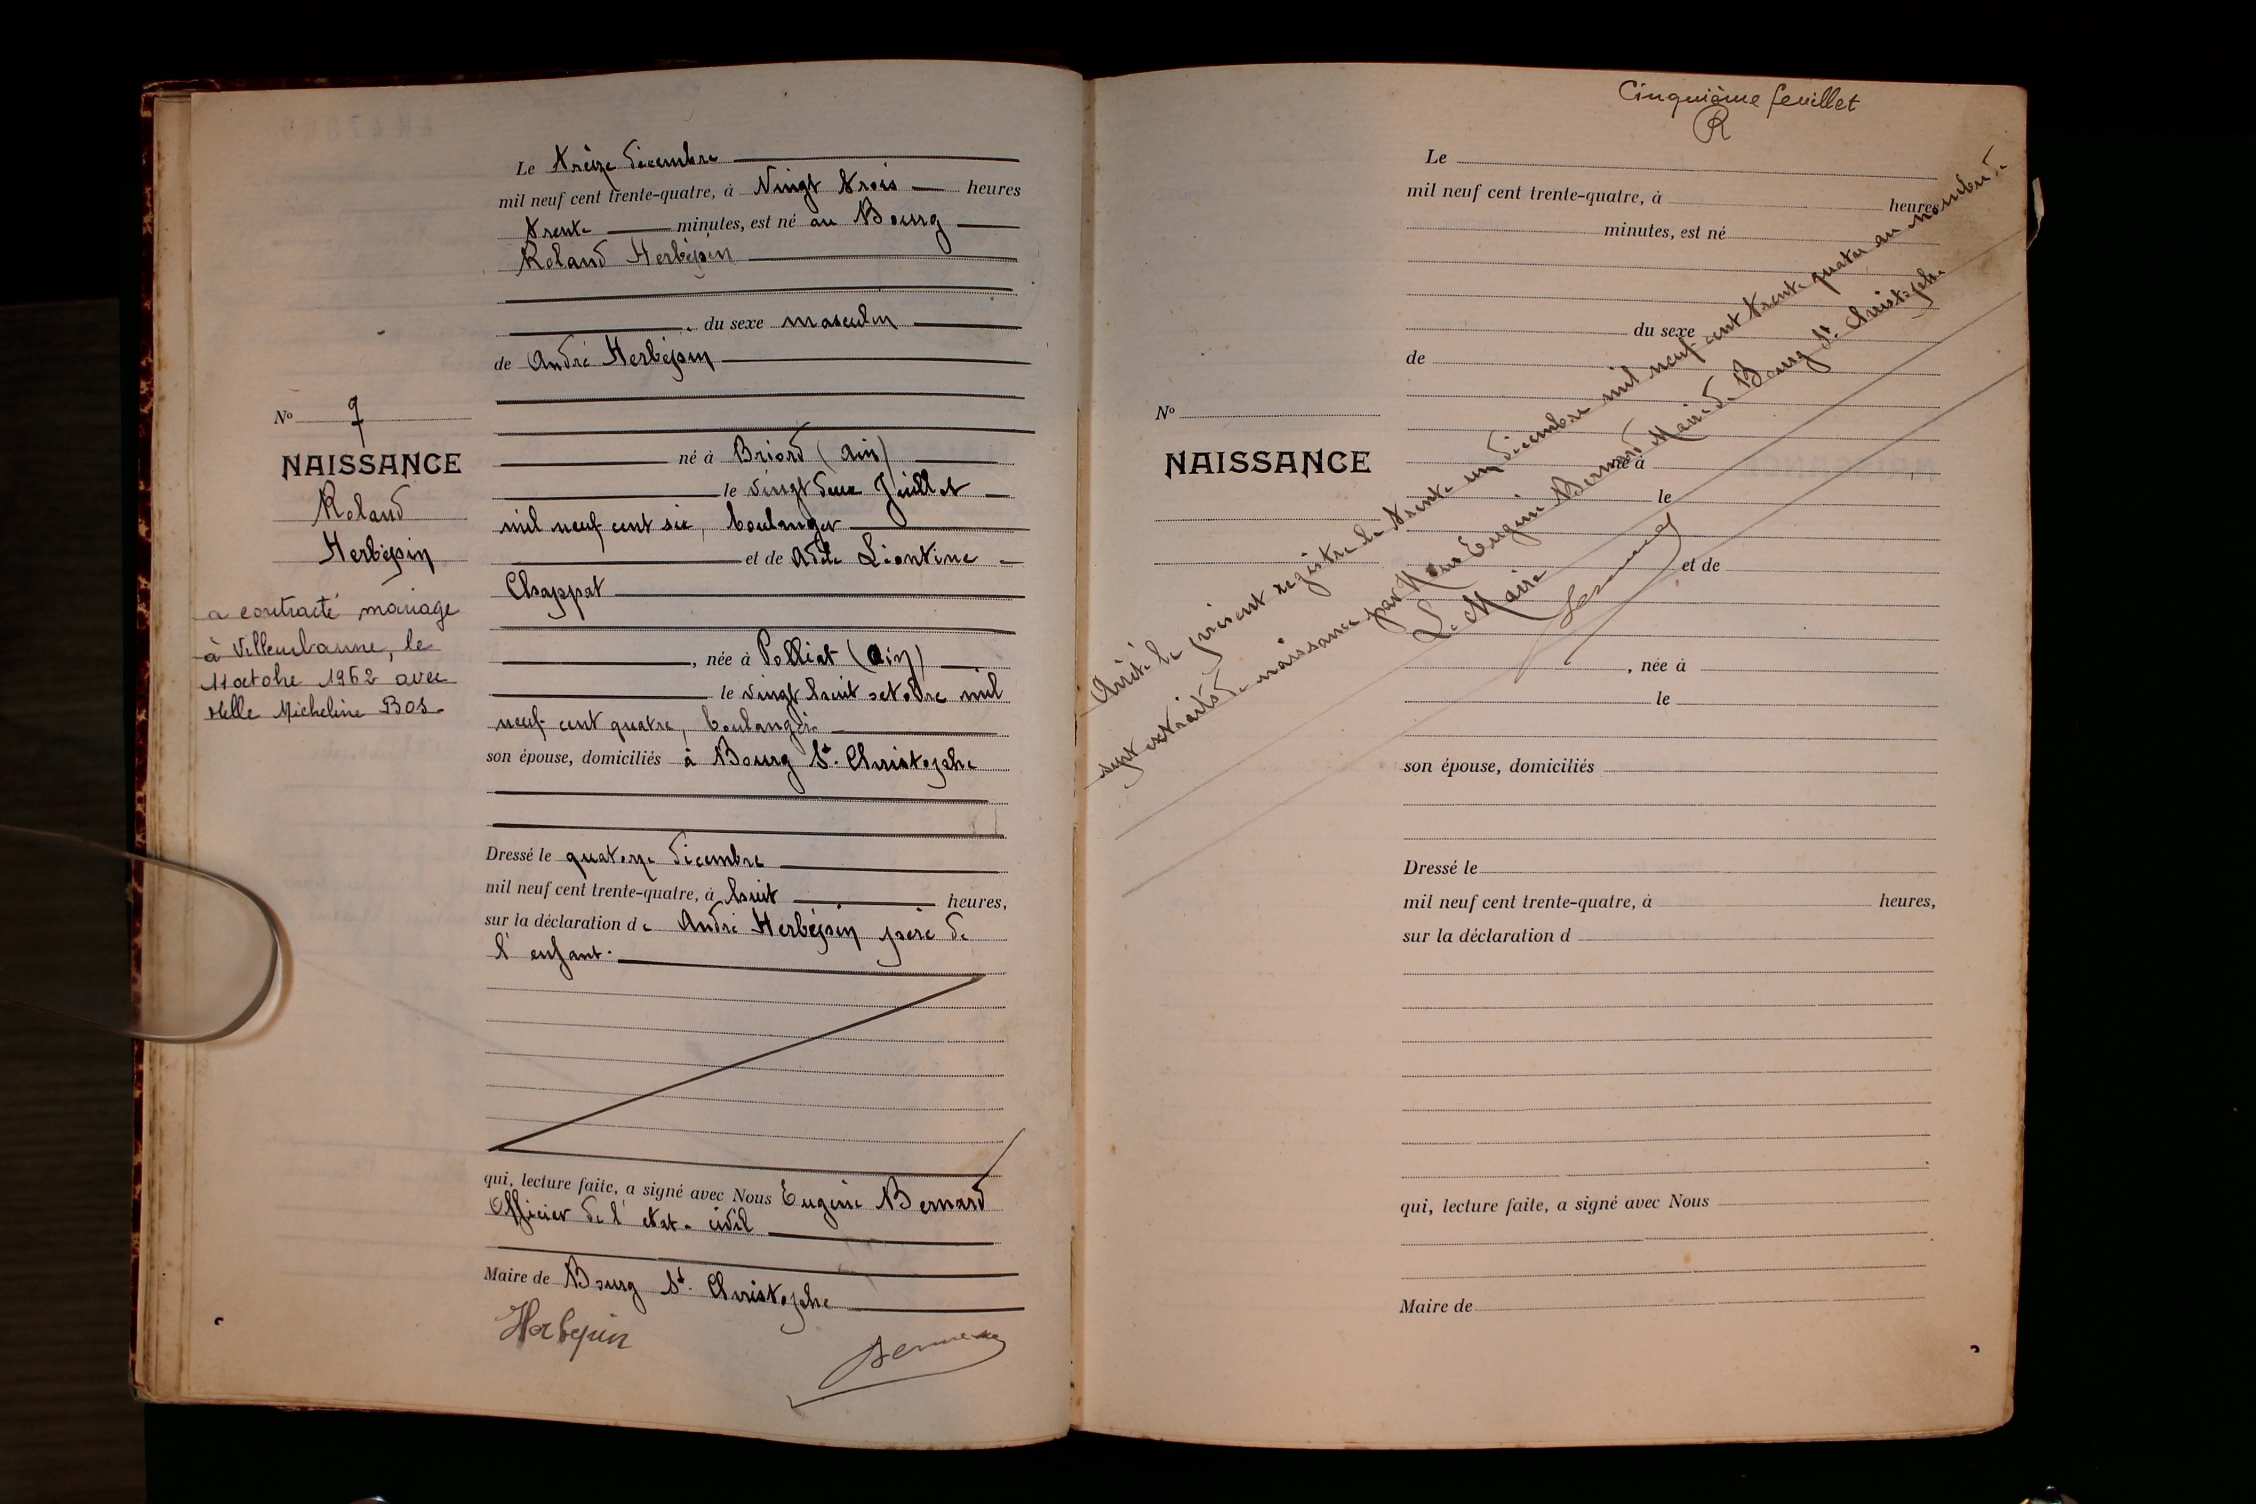 Le treize décembre
mil neuf cent trente-quatre, à Vingt trois heures
trente minutes, est né au Bourg
Roland Herbépin
, du sexe masculin
de André Herbépin
né à Briord (Ain)
le vingt deux Juillet
mil neuf cent six, boulanger
et de Adèle Léontine
Chappat
, née à Polliat (Ain)
le vingt huit octobre mil
neuf cent quatre, boulangère
son épouse, domiciliés à Bourg St. Christophe
Dressé le quatorze décembre
mil neuf cent trente-quatre, à huit heures,
sur la déclaration de André Herbépin père de
l'enfant.
qui, lecture faite, a signé avec Nous Eugène Bernard
Officier de l'état-civil
Maire de Bourg St. Christophe
Herbepin
Bernard
No 7
NAISSANCE
Roland
Herbépin
a contracté mariage
à Villeurbanne, le
11 octobre 1962 avec
Melle Micheline BOS.
Cinquième feuillet
R
Le
mil neuf cent trente-quatre, à heures
minutes, est né
du sexe
de
No
NAISSANCE
né à
le
et de
, née à
le
son épouse, domiciliés
Dressé le
mil neuf cent trente-quatre, à heures,
sur la déclaration d
qui, lecture faite, a signé avec Nous
Maire de
Arrêté le présent registre le trente un décembre mil neuf cent trente quatre au nombre de
sept extraits de naissance par Nous Eugène Bernard Maire de Bourg St. Christophe
Le Maire
Bernard